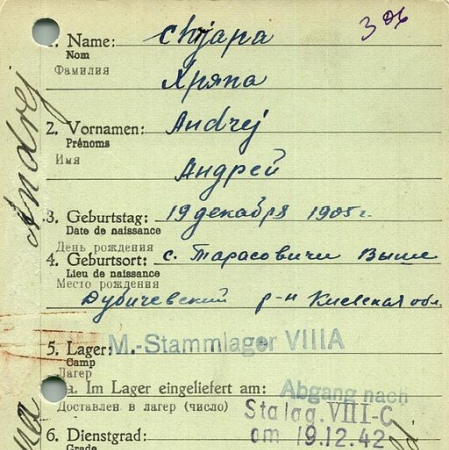 306
1. Name: chjapa
Nom
Фамилия Хряпа
2. Vornamen: Andrej
Prénoms
Имя
Андрей
3. Geburtstag: 19 декабря 1905 г.
Date de naissance
День рождения
4. Geburtsort: с. Тарасовичи Выше
Lieu de naissance
Место рождения
Дубичевский р-н Киевская обл.
5. Lager: M.-Stammlager VIIIA
Camp
Лагер
a. Im Lager eingeliefert am: Abgang nach
Доставлен в лагер (число) Stalag VIII-C
am 19.12.42
6. Dienstgrad:
Grade
Andrej